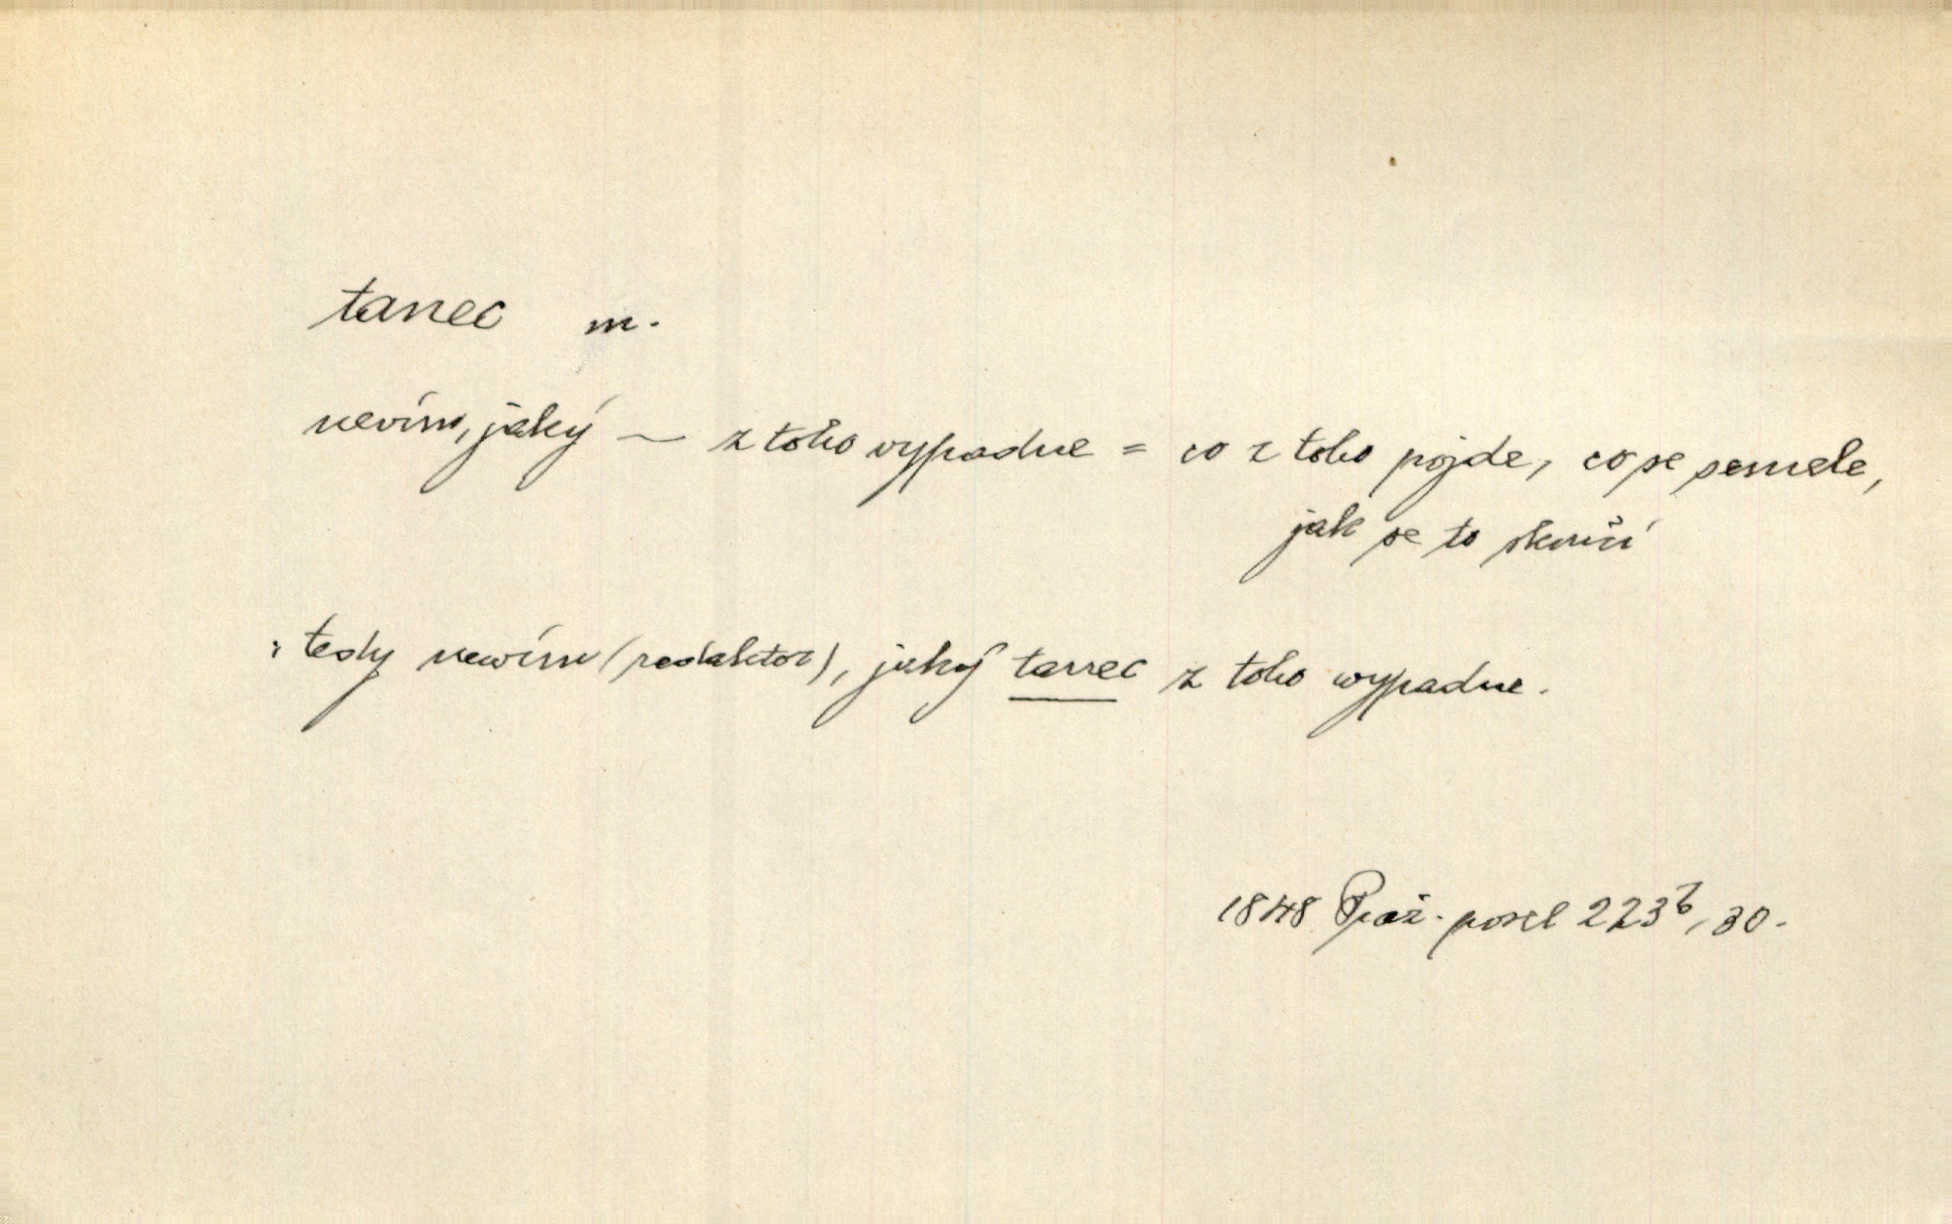 tanec m.
nevím, jaký ~ z toho vypadne = co z toho pojde, co se semele,
jak se to skončí
: tedy newím (redaktor), jaký tanec z toho wypadne.
1848 Praž. posel 223b, 30.